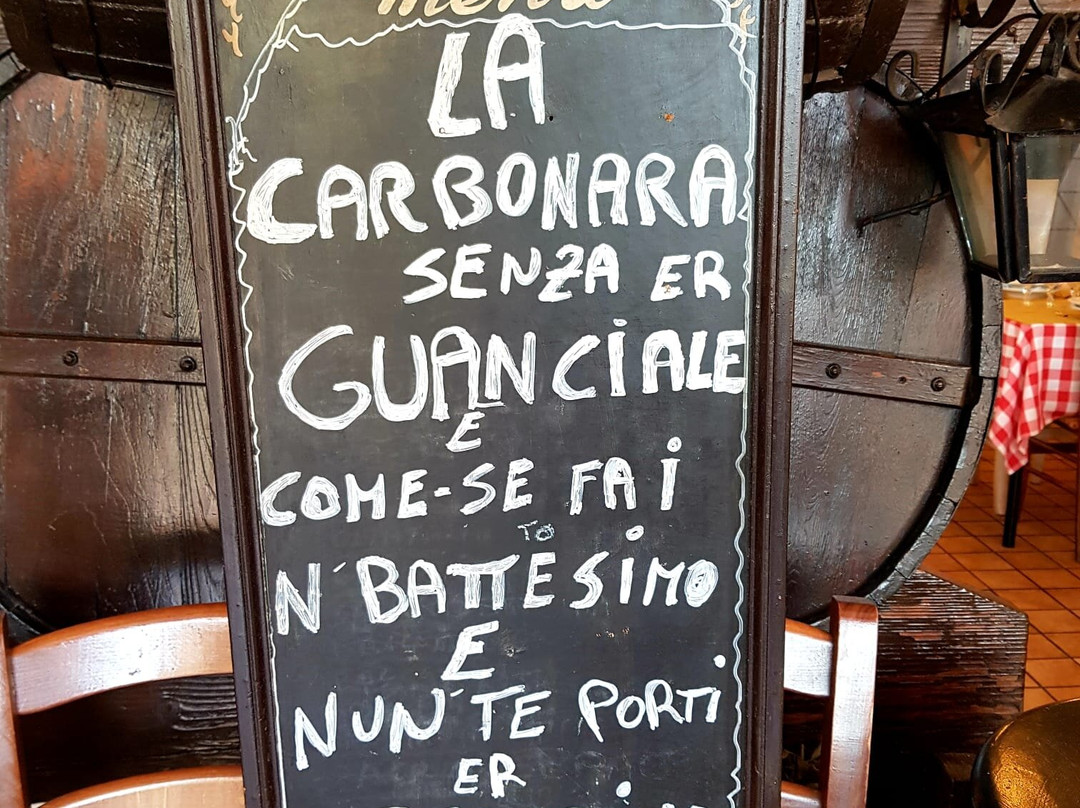 menu
LA
CARBONARA
SENZA ER
GUANCIALE
E
COME-SE FAi
TO
N´BATTESiMO
E
NUN´TE PORTi
ER